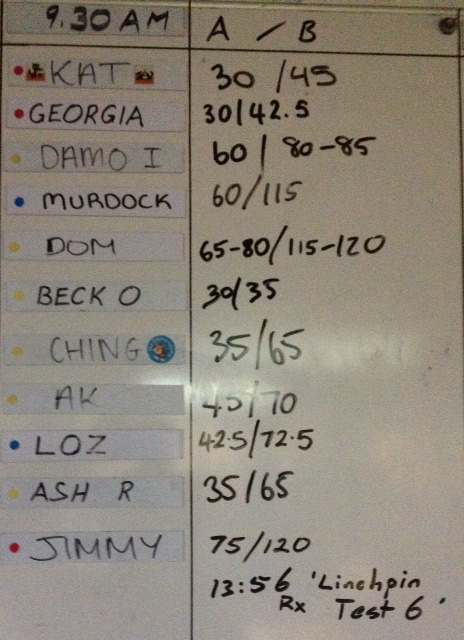 9.30 AM A / B
KAT 30 / 45
GEORGIA 30/42.5
DAMO I 60 / 80-85
MURDOCK 60/115
DOM 65-80/115-120
BECK O 30/35
CHING 35/65
AK 45/70
LOZ 42.5/72.5
ASH R 35/65
JIMMY 75/120
13:56 'Linchpin
Rx Test 6'